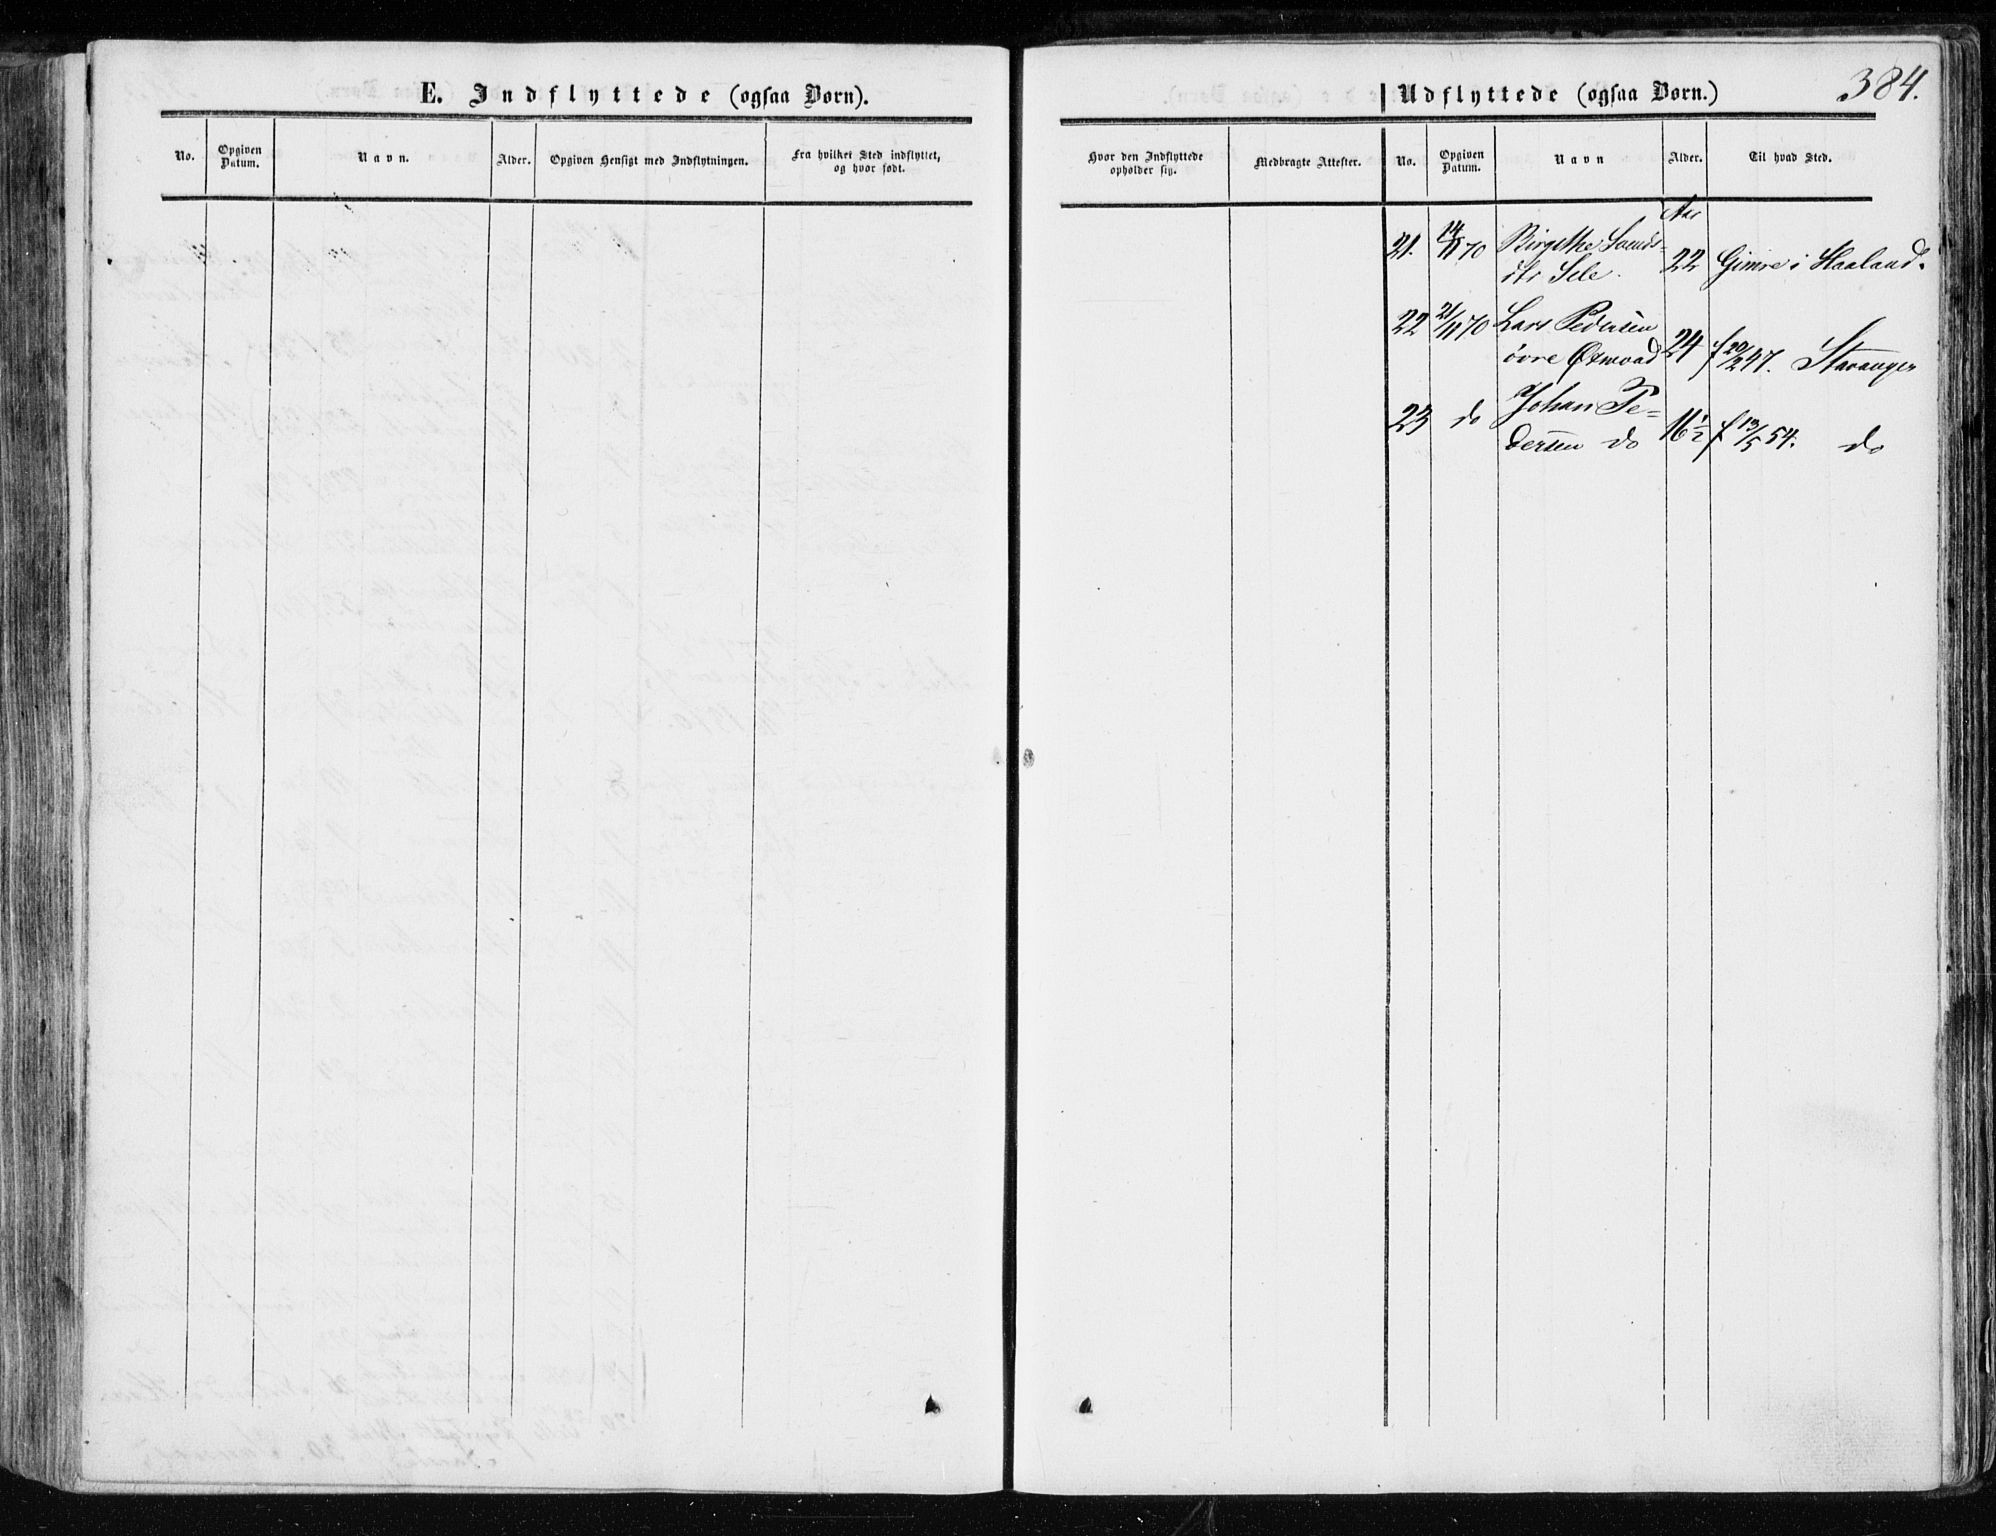 E. Indflyttede (ogsaa Børn).
No.
Opgiven Datum.
Navn.
Alder.
Opgiven Hensigt med Indflytningen.
Fra hvilket Sted indflyttet, og hvor født.
Udflyttede (ogsaa Børn.)
384.
Hvor den Indflyttede opholder sig.
Medbragte Attester.
No.
Opgiven Datum.
Navn
Alder.
Til hvad Sted.
Aar
21. 14/11 70 Birgithe
dtr Sele. 22 Gimre i Haaland.
22 21/11 70 Lars Pedersen
øvre 24 f 20/2 47. Stavanger
23 do Johan Pe=
dersen do 16 1/2 f 13/5 54. do